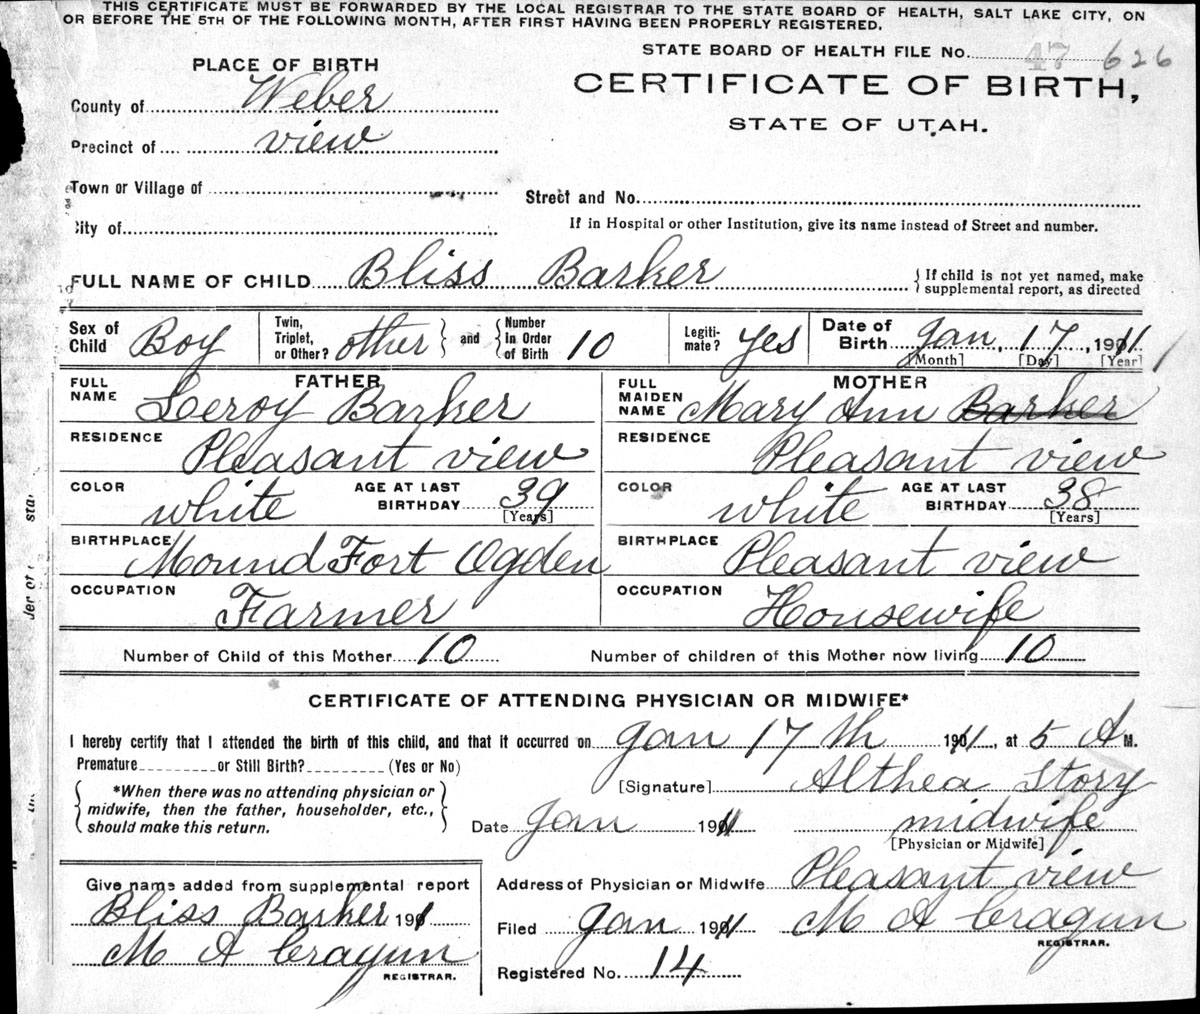 THIS CERTIFICATE MUST BE FORWARDED BY THE LOCAL REGISTRAR TO THE STATE BOARD OF HEALTH, SALT LAKE CITY, ON
OR BEFORE THE 5TH OF THE FOLLOWING MONTH, AFTER FIRST HAVING BEEN PROPERLY REGISTERED.
STATE BOARD OF HEALTH FILE No. 47 626
PLACE OF BIRTH
CERTIFICATE OF BIRTH,
STATE OF UTAH.
County of Weber
Precinct of view
Town or Village of
Street and No.
City of
If in Hospital or other Institution, give its name instead of Street and number.
FULL NAME OF CHILD Bliss Barker
{ If child is not yet named, make
supplemental report, as directed
Sex of Child Boy
Twin, Triplet, or Other? other } and { Number In Order of Birth 10
Legiti-mate? Yes
Date of Birth Jan, 17, 1911
[Month] [Day] [Year]
FATHER
FULL NAME Leroy Barker
MOTHER
FULL MAIDEN NAME Mary Ann Barker
RESIDENCE Pleasant view
RESIDENCE Pleasant view
COLOR white AGE AT LAST BIRTHDAY 39 [Years]
COLOR white AGE AT LAST BIRTHDAY 38 [Years]
BIRTHPLACE Mound Fort Ogden
BIRTHPLACE Pleasant view
OCCUPATION Farmer
OCCUPATION Housewife
Number of Child of this Mother 10 Number of children of this Mother now living 10
CERTIFICATE OF ATTENDING PHYSICIAN OR MIDWIFE*
I hereby certify that I attended the birth of this child, and that it occurred on Jan 17 th 1911, at 5 A M.
Premature or Still Birth? (Yes or No)
[Signature] Althea Story
{ *When there was no attending physician or
midwife, then the father, householder, etc.,
should make this return. }
Date Jan 1911 midwife
[Physician or Midwife]
Give name added from supplemental report
Bliss Barker 191
M A Cragun
REGISTRAR.
Address of Physician or Midwife Pleasant view
Filed Jan 1911 M A Cragun
REGISTRAR.
Registered No. 14